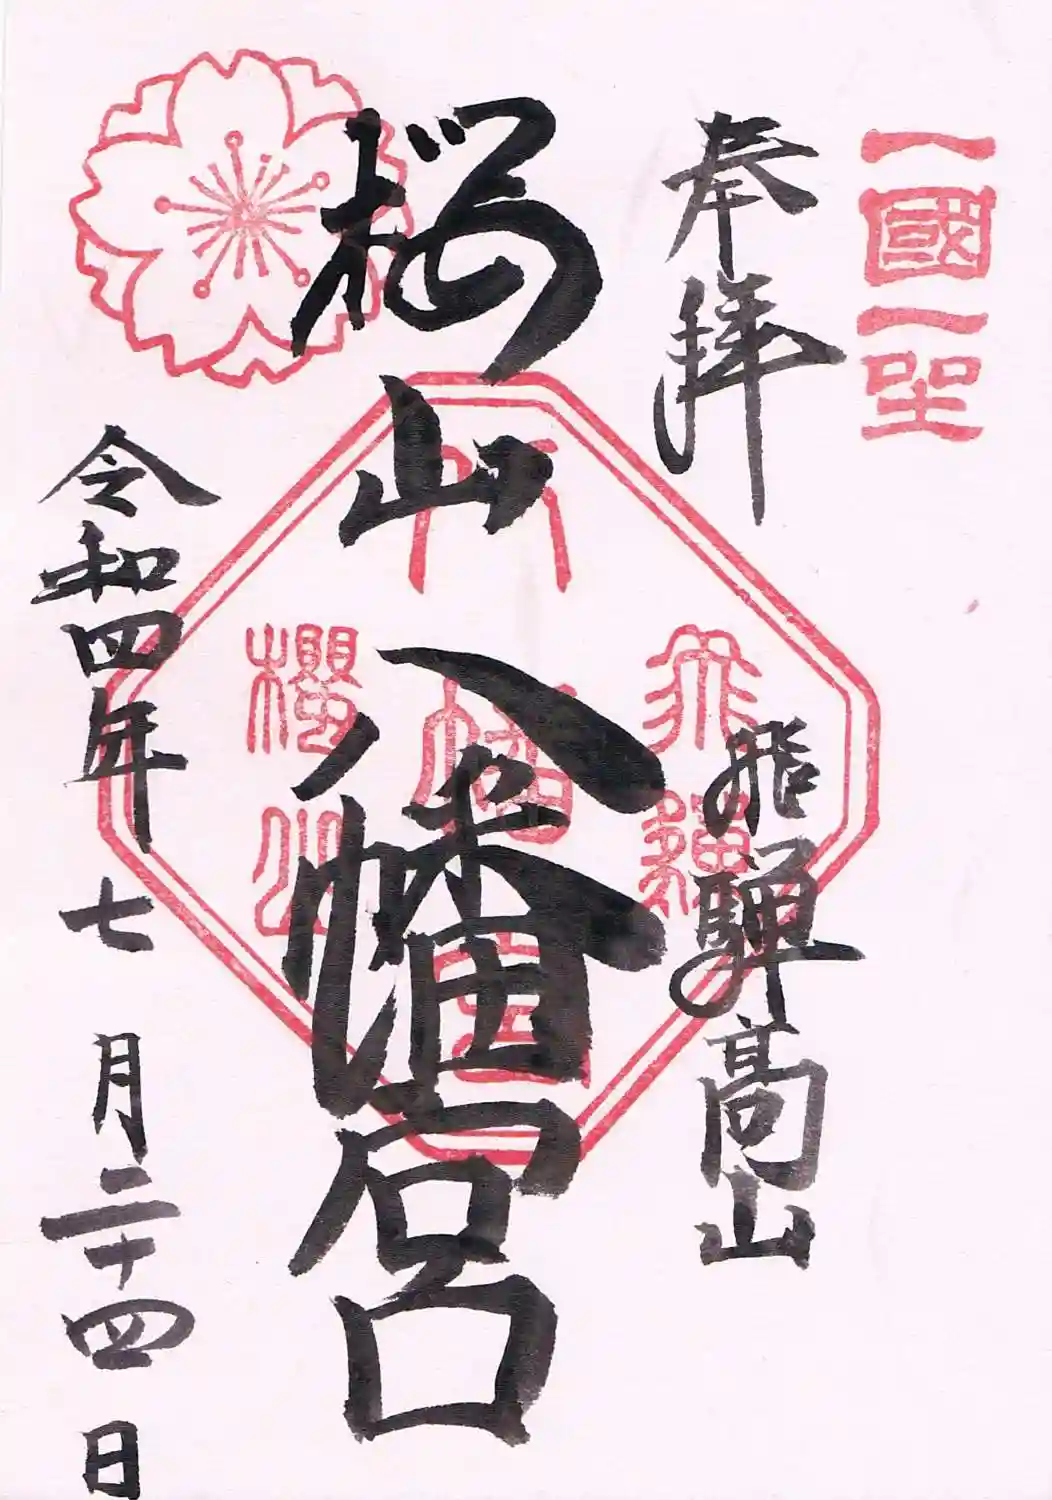 一國一社
奉拝
飛騨高山
桜山八幡宮
飛騨
八幡宮
櫻山
令和四年七月二十四日